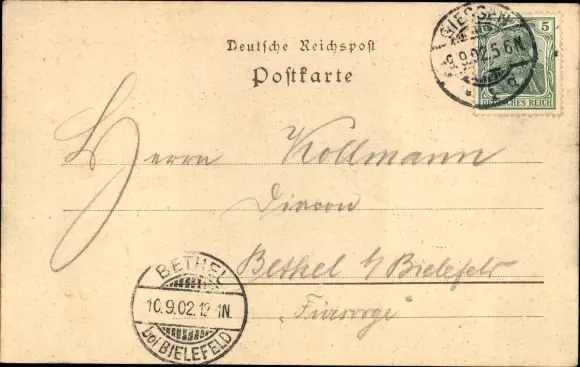 Deutsche Reichspost
Postkarte
GIESSEN
9.02.5-6N.
5
DEUTSCHES REICH
Herrn Kollmann
Diacon
Bethel b/ Bielefeld
"Fürsorge"
BETHEL
10.9.02.12-1N.
bei BIELEFELD